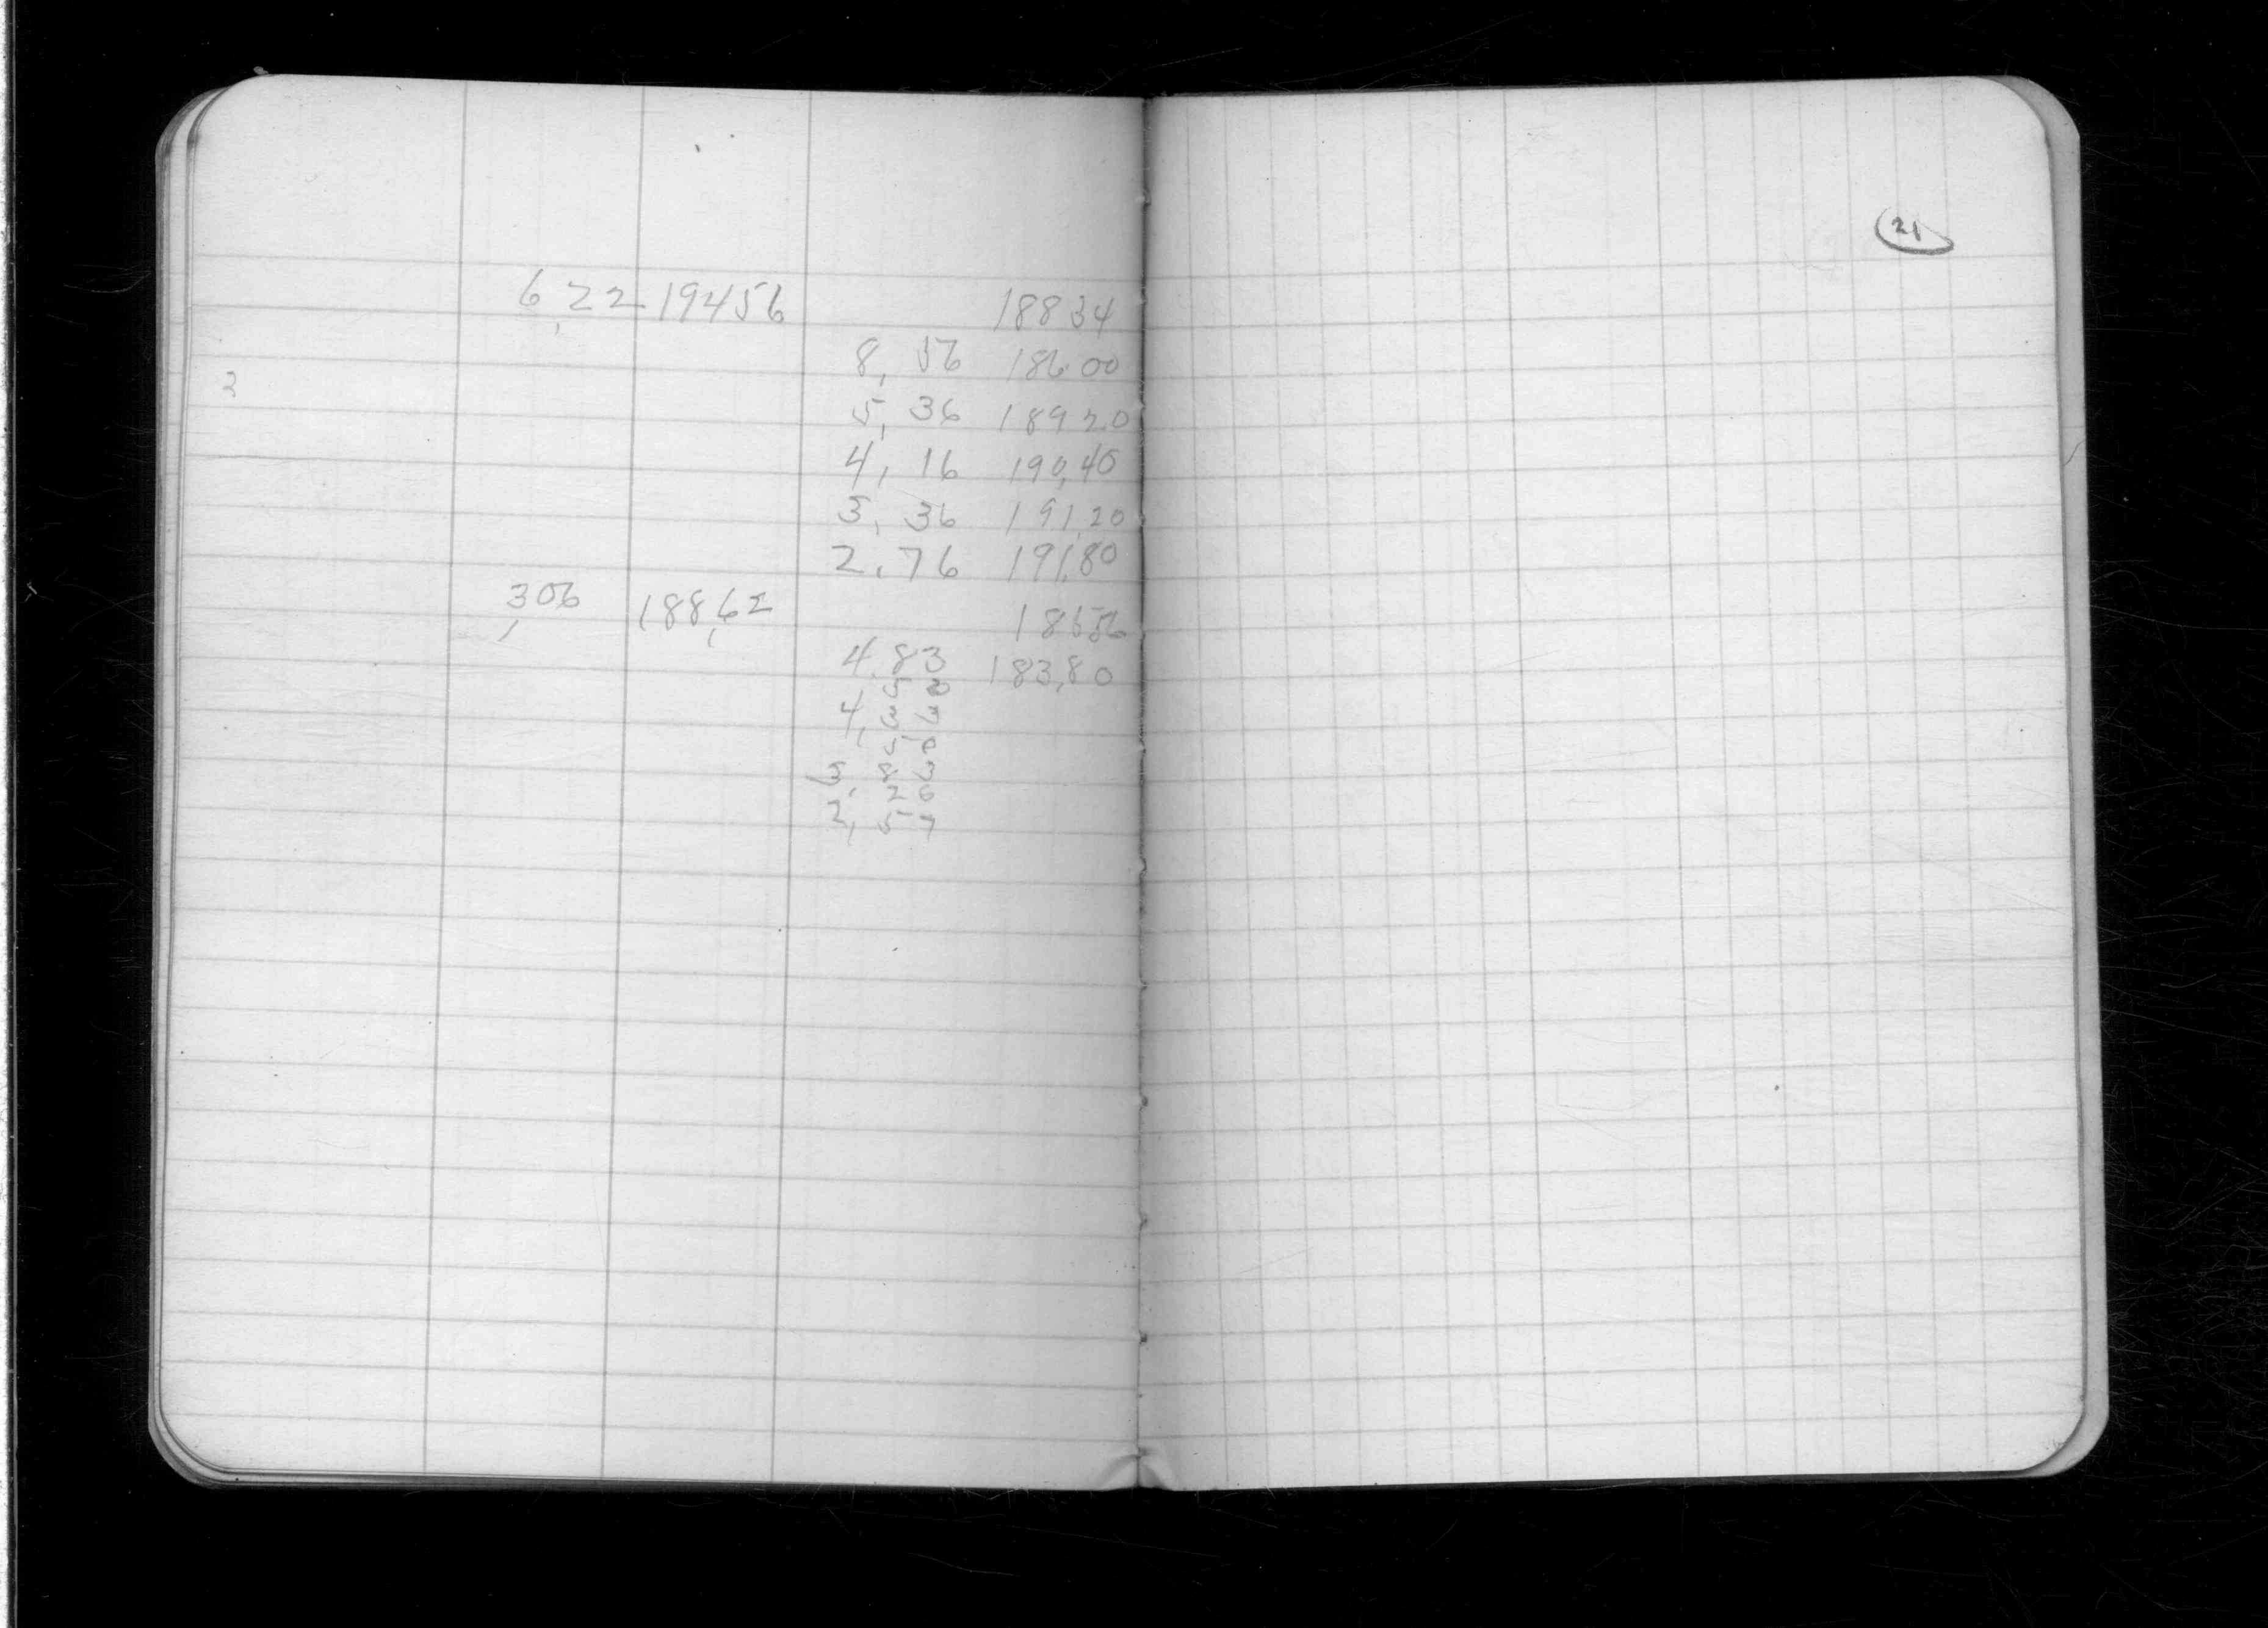 6,22 19456 18834
8, 56 186.00
3
5, 36 189 20
4, 16 190,40
3, 36 191,20
2, 76 191,80
,306 188,62 18556
4,83 183,80
2, 57
21